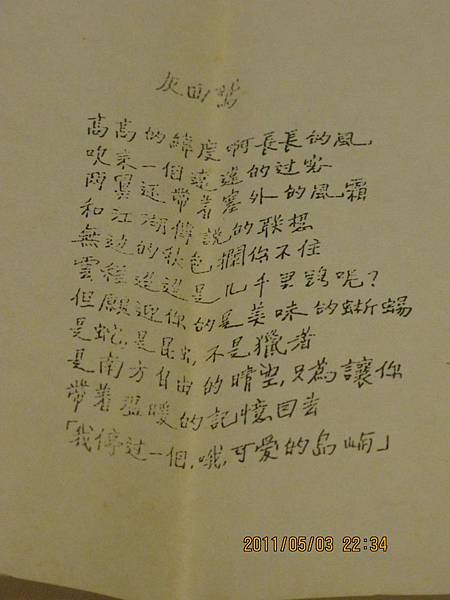 灰面鷲
高高的緯度啊長長的風,
吹來一個遠遠的过客
两翼还帶着塞外的風霜
和江湖傳說的联想
無边的秋色攔你不住
雲程迢迢是几千里路呢?
但願迎你的是美味的蜥蜴
是蛇,是昆虫,不是獵者
是南方自由的晴空,只為讓你
帶着温暖的記憶回去
「我停过一個,哦,可爱的岛嶼」
2011/05/03 22:34